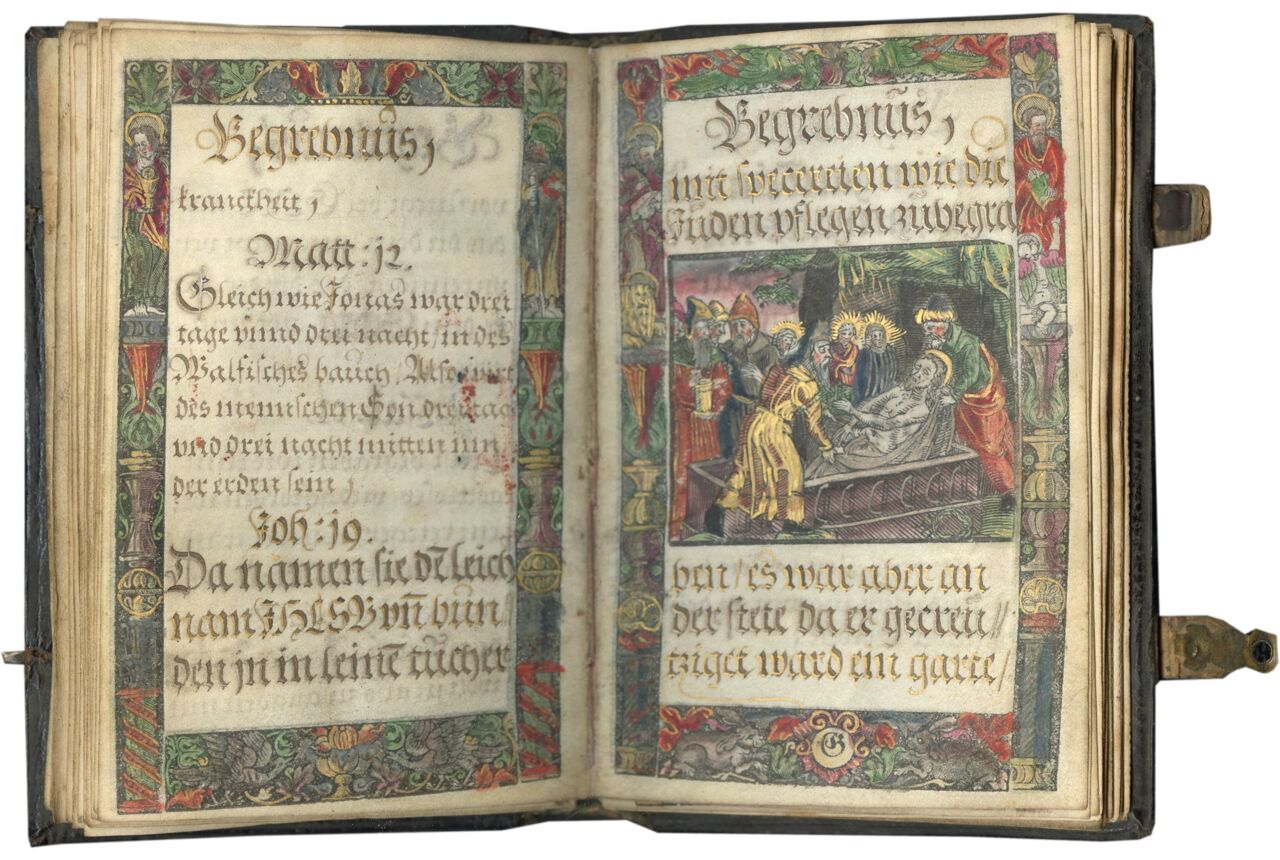 Begrebnuͤs,
kranckheit,
Matt: 12.
Gleich wie Jonas war drei
tage vnnd drei nacht / in des
Walfisches bauch / Also wirt
des mennschen Son drei tag
vnd drei nacht mitten inn
der erden sein,
Joh: 19.
Da namen sie dē leich
nam JHESV vn̄ bun/
den jn in leinē tuͤcher
Begrebnuͤs,
mit specereien wie die
Juden pflegen zuͤbegra
ben / es war aber an
der stete da er gecreu//
tziget ward ein garte/
G